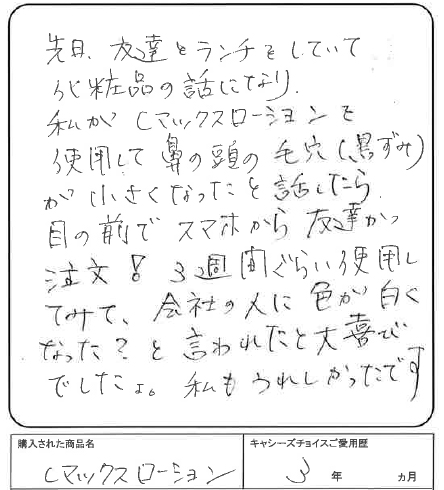 先日、友達とランチをしていて
化粧品の話になり、
私が Cマックスローションを
使用して鼻の頭の毛穴(黒ずみ)
が小さくなったと話したら
目の前でスマホから友達が
注文! 3週間ぐらい使用し
てみて、会社の人に色が白く
なった?と言われたと大喜び
でしたよ。私もうれしかったです
購入された商品名
キャシーズチョイスご愛用歴
Cマックスローション
3年 ヵ月